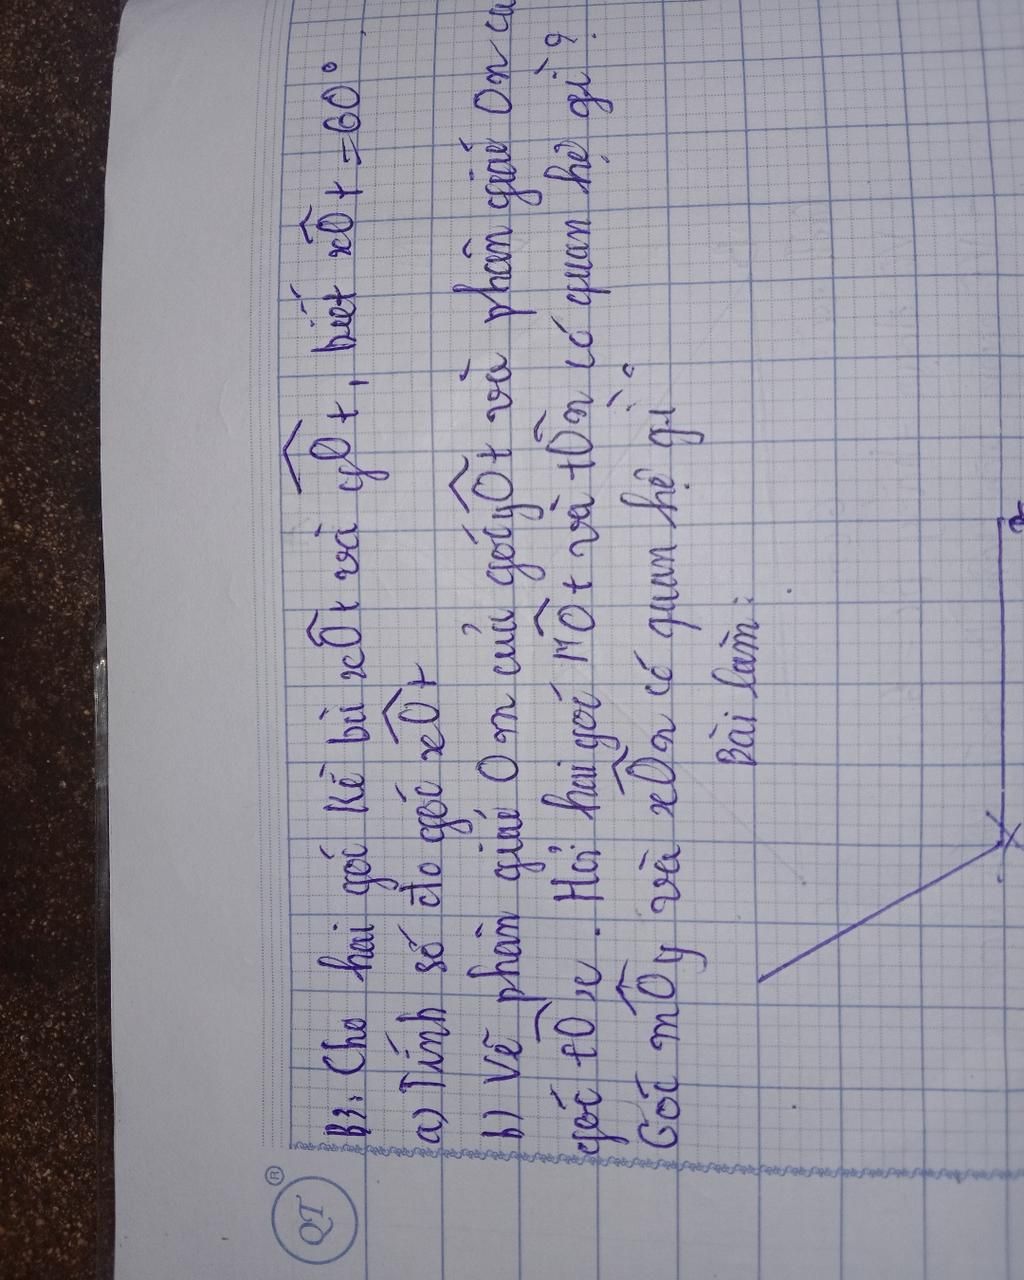 QT ®
B3: Cho hai góc kề bù xOt và yOt, biết xOt = 60°
a) Tính số đo góc xOt
b) Vẽ phân giác Om của góc yOt và phân giác On củ
góc tOx. Hỏi hai góc mOt và tOn có quan hệ gì?
Góc mOy và xOn có quan hệ gì?
Bài làm: